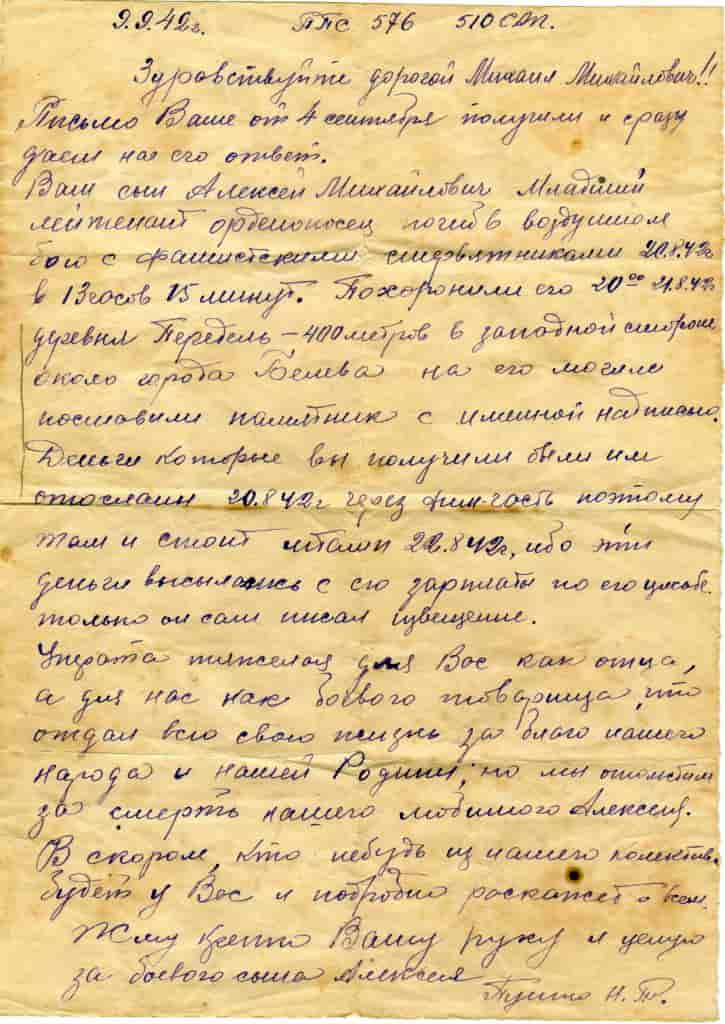 9.9.42г. ППС 576 510 САП.
Здравствуйте дорогой Михаил Михайлович!!
Письмо Ваше от 4 сентября получили и сразу
даем на его ответ.
Ваш сын Алексей Михайлович Младший
лейтенант орденоносец погиб в воздушном
бою с фашистскими стервятниками 20.8.42г
в 13 часов 15 минут. Похоронили его 20⁰⁰ 21.8.42г
деревня Передель – 400 метров в западной стороне
около города Белева на его могиле
поставили памятник с именной надписью.
Деньги которые вы получили были им
отосланы 20.8.42г через фин-часть поэтому
там и стоит штамп 22.8.42г, ибо эти
деньги высылались с его зарплаты по его
только он сам писал извещение.
Утрата тяжелая для Вас как отца,
а для нас как боевого товарища, что
отдал всю свою жизнь за благо нашего
народа и нашей Родины, но мы отомстим
за смерть нашего любимого Алексея.
В скором, кто небудь из нашего колектив.
будет у Вас и подробно раскажет о всем.
Жму крепко Вашу руку и целую
за боевого сына Алексея
Н. П.